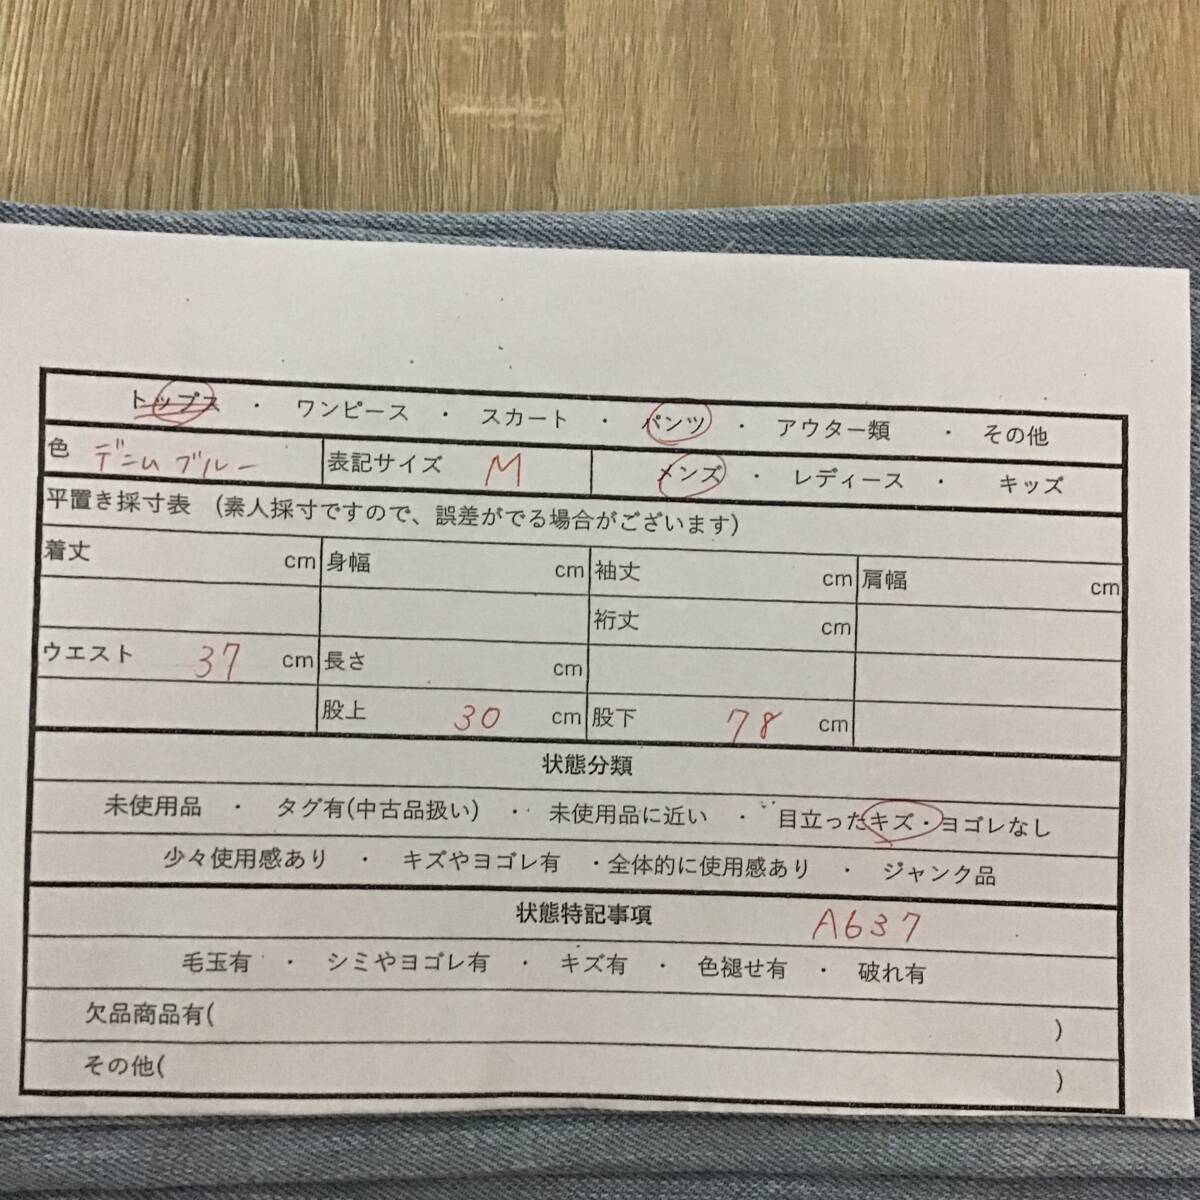 トップス ・ ワンピース ・ スカート ・ パンツ ・ アウター類 ・ その他
色 デニムブルー 表記サイズ M メンズ ・ レディース ・ キッズ
平置き採寸表 (素人採寸ですので、誤差がでる場合がございます)
着丈 cm 身幅 cm 袖丈 cm 肩幅 cm
裄丈 cm
ウエスト 37 cm 長さ cm
股上 30 cm 股下 78 cm
状態分類
未使用品 ・ タグ有(中古品扱い) ・ 未使用品に近い ・ 目立ったキズ・ヨゴレなし
少々使用感あり ・ キズやヨゴレ有 ・全体的に使用感あり ・ ジャンク品
状態特記事項 A637
毛玉有 ・ シミやヨゴレ有 ・ キズ有 ・ 色褪せ有 ・ 破れ有
欠品商品有( )
その他( )